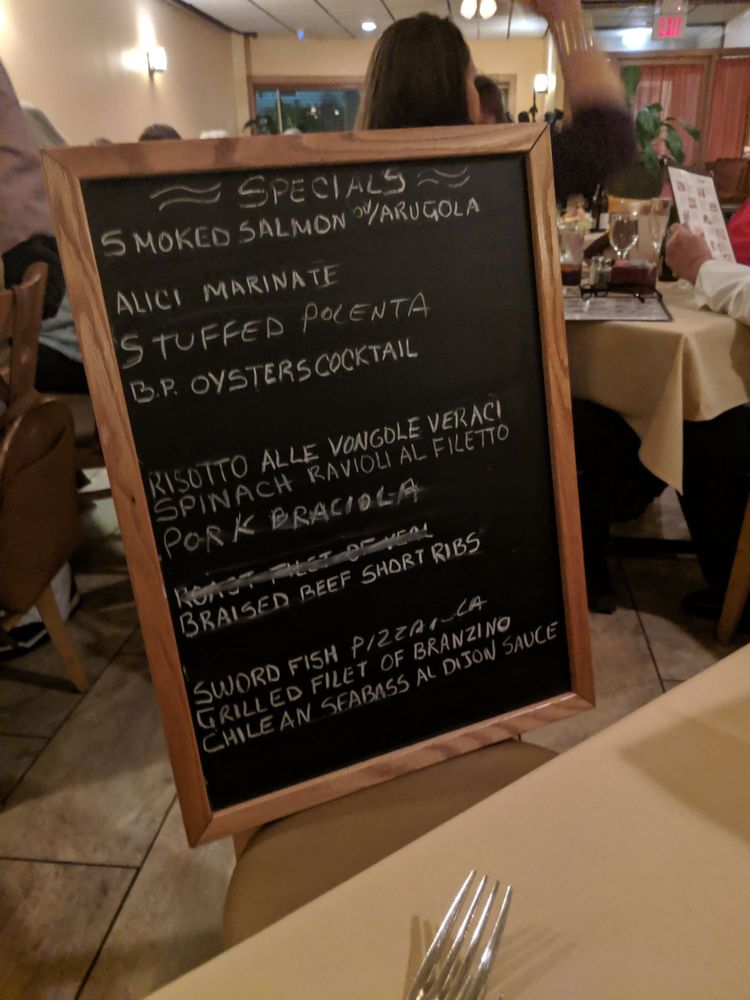 EXIT
SPECIALS
SMOKED SALMON W/ARUGOLA
ALICI MARINATE
STUFFED POLENTA
B.P. OYSTERS COCKTAIL
RISOTTO ALLE VONGOLE VERACI
SPINACH RAVIOLI AL FILETTO
PORK BRACIOLA
ROAST FILET OF VEAL
BRAISED BEEF SHORT RIBS
SWORD FISH
GRILLED FILET OF BRANZINO
CHILEAN SEABASS AL DIJON SAUCE